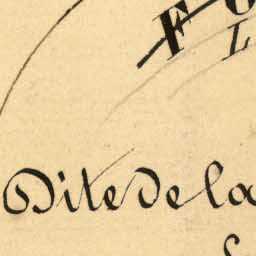 F
L
Dite de la